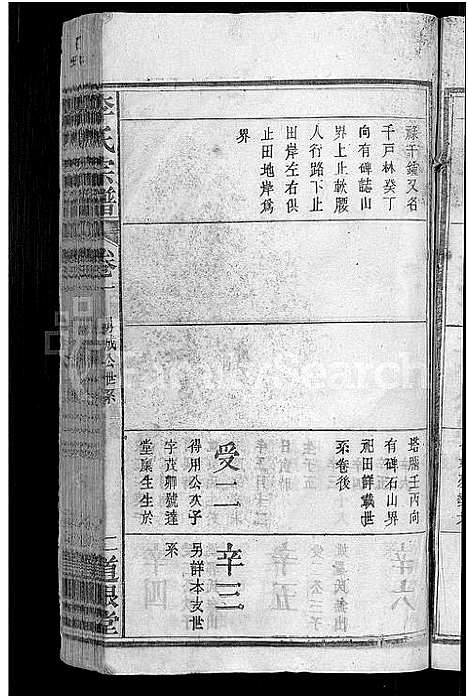 祿千鍾又名
千戶林癸丁
向有碑誌山
界上止軟腰
人行路下止
田岸左右俱
止田地岸爲
界
塔腦壬丙向
有碑石山界
祀田詳載世
系卷後
受二
得用公次子
字茂卿號達
堂廩生生於
辛三
另詳本支世
系
李氏宗譜
卷一
公世系
二
道根堂
FamilySearch